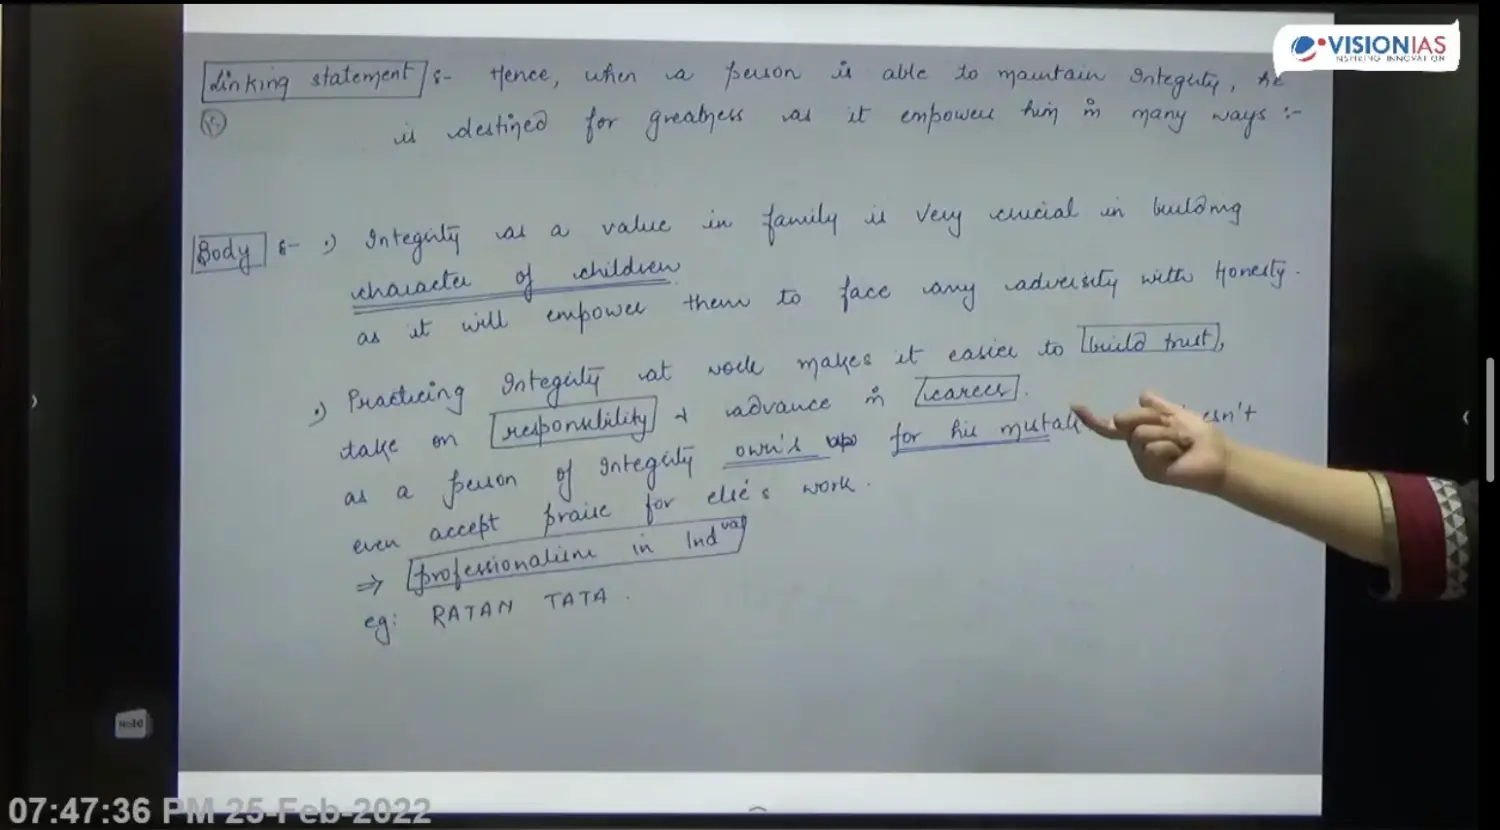 VISIONIAS
INSPIRING INNOVATION
Linking statement :- Hence, when a person is able to maintain Integrity, he
is destined for greatness as it empower him in many ways :-
Body :- •) Integrity as a value in family is very crucial in building
character of children
as it will empower them to face any adversity with Honesty.
•) Practicing Integrity at work makes it easier to build trust,
take on responsibility + advance in career.
as a person of Integrity own's up for his mistak esn't
even accept praise for else's work.
⇒ professionalism in Indval
eg: RATAN TATA.
Note
07:47:36 PM 25-Feb-2022